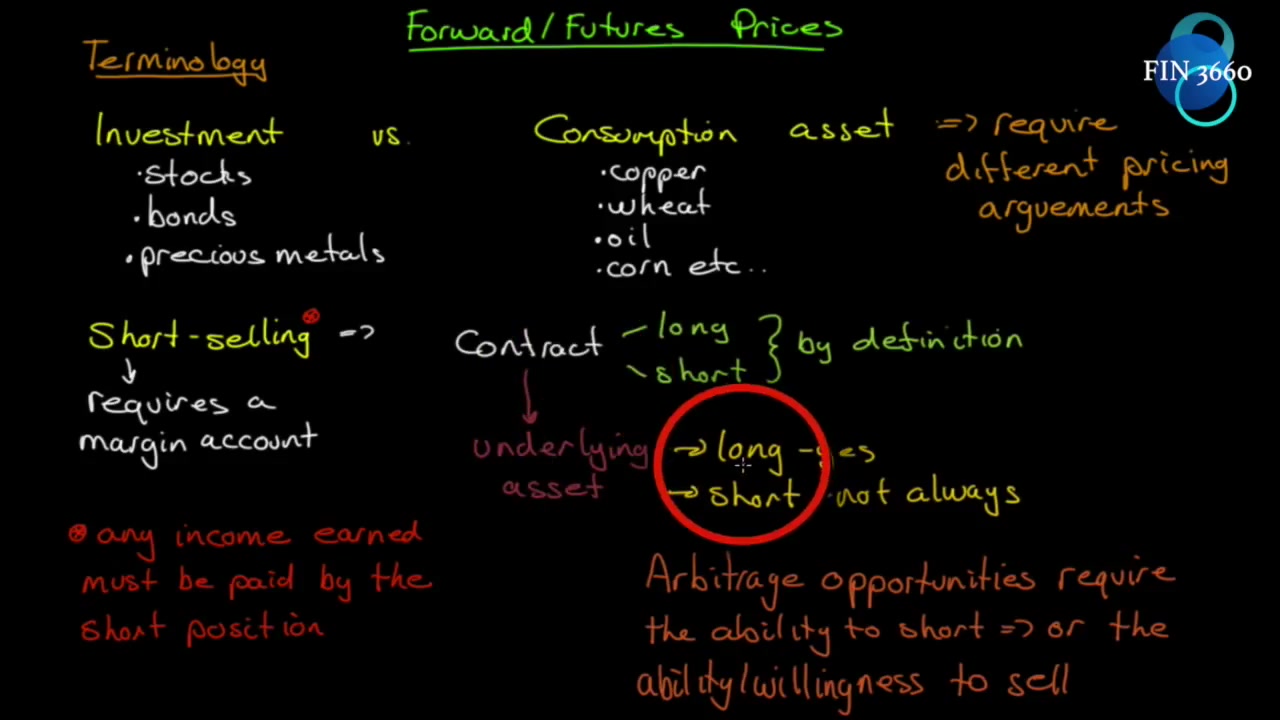 Forward/Futures Prices
FIN 3660
Terminology
Investment vs. Consumption asset => require
different pricing
arguements
·stocks
·bonds
·precious metals
·copper
·wheat
·oil
·corn etc..
Short-selling => Contract long
short } by definition
requires a
margin account
underlying
asset
→ long - yes
→ short - not always
any income earned
must be paid by the
short position
Arbitrage opportunities require
the ability to short => or the
ability/willingness to sell